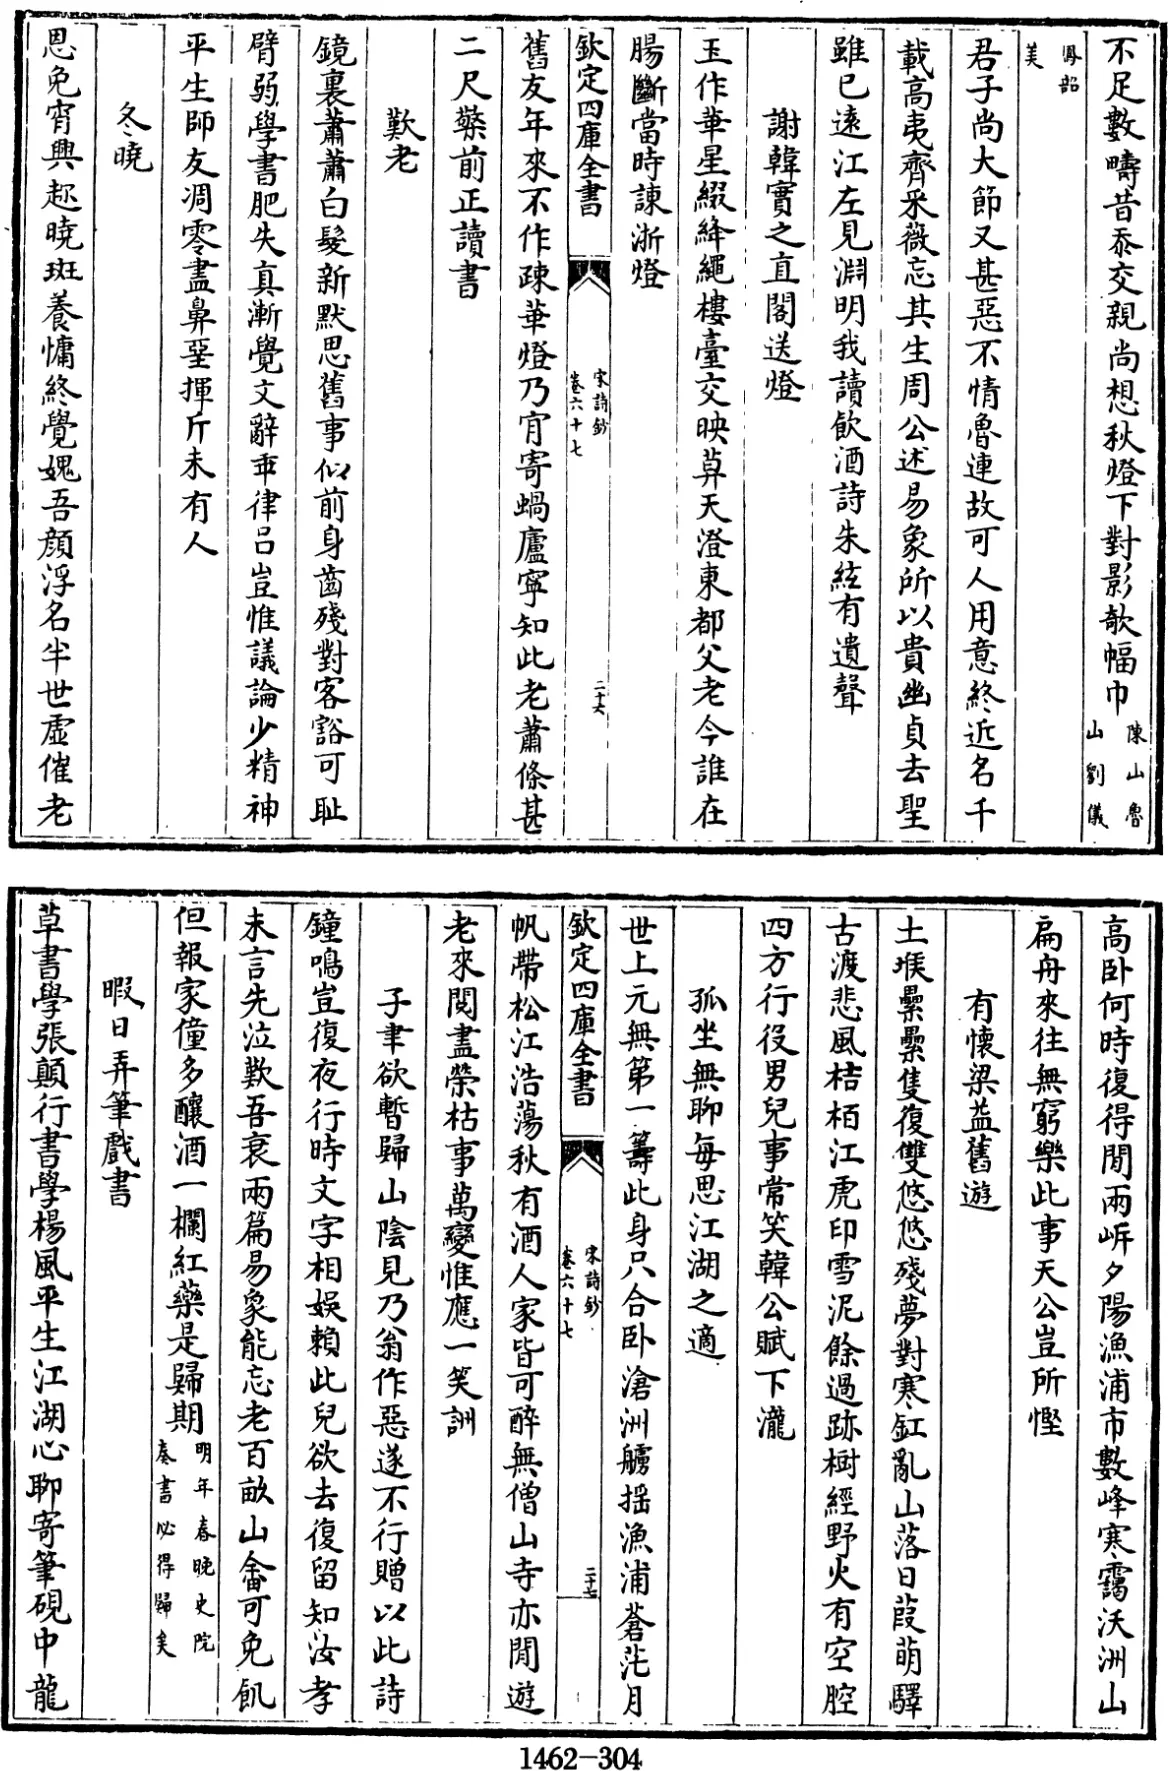 不足數疇昔忝交親尚想秋燈下對影欹幅巾陳山魯山劉儀
鳳韶美
君子尚大節又甚惡不情魯連故可人用意終近名千
載高夷齊采薇忘其生周公述易象所以貴幽貞去聖
雖已遠江左見淵明我讀飲酒詩朱絃有遺聲
謝韓實之直閣送燈
玉作華星綴絳繩樓臺交映暮天澄東都父老今誰在
腸斷當時諫浙燈
欽定四庫全書
宋詩鈔
卷六十七
二十六
舊友年來不作疎華燈乃肯寄蝸廬寧知此老蕭條甚
二尺檠前正讀書
歎老
鏡裏蕭蕭白髮新默思舊事似前身齒殘對客豁可恥
臂弱學書肥失真漸覺文辭乖律呂豈惟議論少精神
平生師友凋零盡鼻堊揮斤未有人
冬曉
思免宵興趂曉班養慵終覺媿吾顏浮名半世虛催老
高卧何時復得閒兩岍夕陽漁浦市數峰寒靄沃洲山
扁舟來往無窮樂此事天公豈所慳
有懷梁益舊遊
土堠纍纍隻復雙悠悠殘夢對寒釭亂山落日葭萌驛
古渡悲風桔栢江虎印雪泥餘過跡樹經野火有空腔
四方行役男兒事常笑韓公賦下瀧
孤坐無聊每思江湖之適
世上元無第一籌此身只合卧滄洲艣搖漁浦蒼茫月
欽定四庫全書
宋詩鈔
卷六十七
二十七
帆帶松江浩蕩秋有酒人家皆可醉無僧山寺亦閒遊
老來閱盡榮枯事萬變惟應一笑詶
子聿欲暫歸山陰見乃翁作惡遂不行贈以此詩
鐘鳴豈復夜行時文字相娛賴此兒欲去復留知汝孝
未言先泣歎吾衰兩篇易象能忘老百畝山畬可免飢
但報家僮多釀酒一欄紅藥是歸期明年春晚史院奏書必得歸矣
暇日弄筆戲書
草書學張顛行書學楊風平生江湖心聊寄筆硯中龍
1462-304